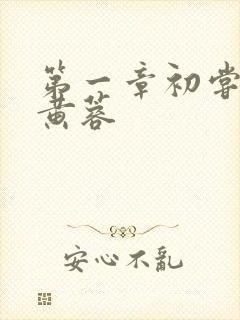 第一章初嘗
黄蓉
安心不亂